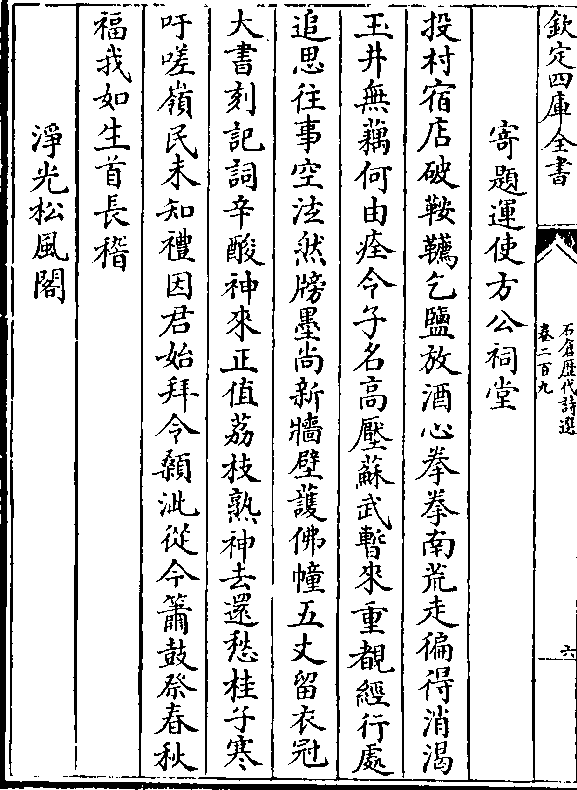 欽定四庫全書
石倉歷代詩選
卷二百九
六
寄題運使方公祠堂
投村宿店破鞍韉乞鹽放酒心拳拳南荒走徧得消渴
玉井無藕何由痊今子名高壓蘇武暫來重覩經行處
追思往事空泫然牓墨尚新牆壁護佛幢五丈留衣冠
大書刻記詞辛酸神來正值荔枝熟神去還愁桂子寒
吁嗟嶺民未知禮因君始拜令顙泚從今簫鼓祭春秋
福我如生首長稽
淨光松風閣